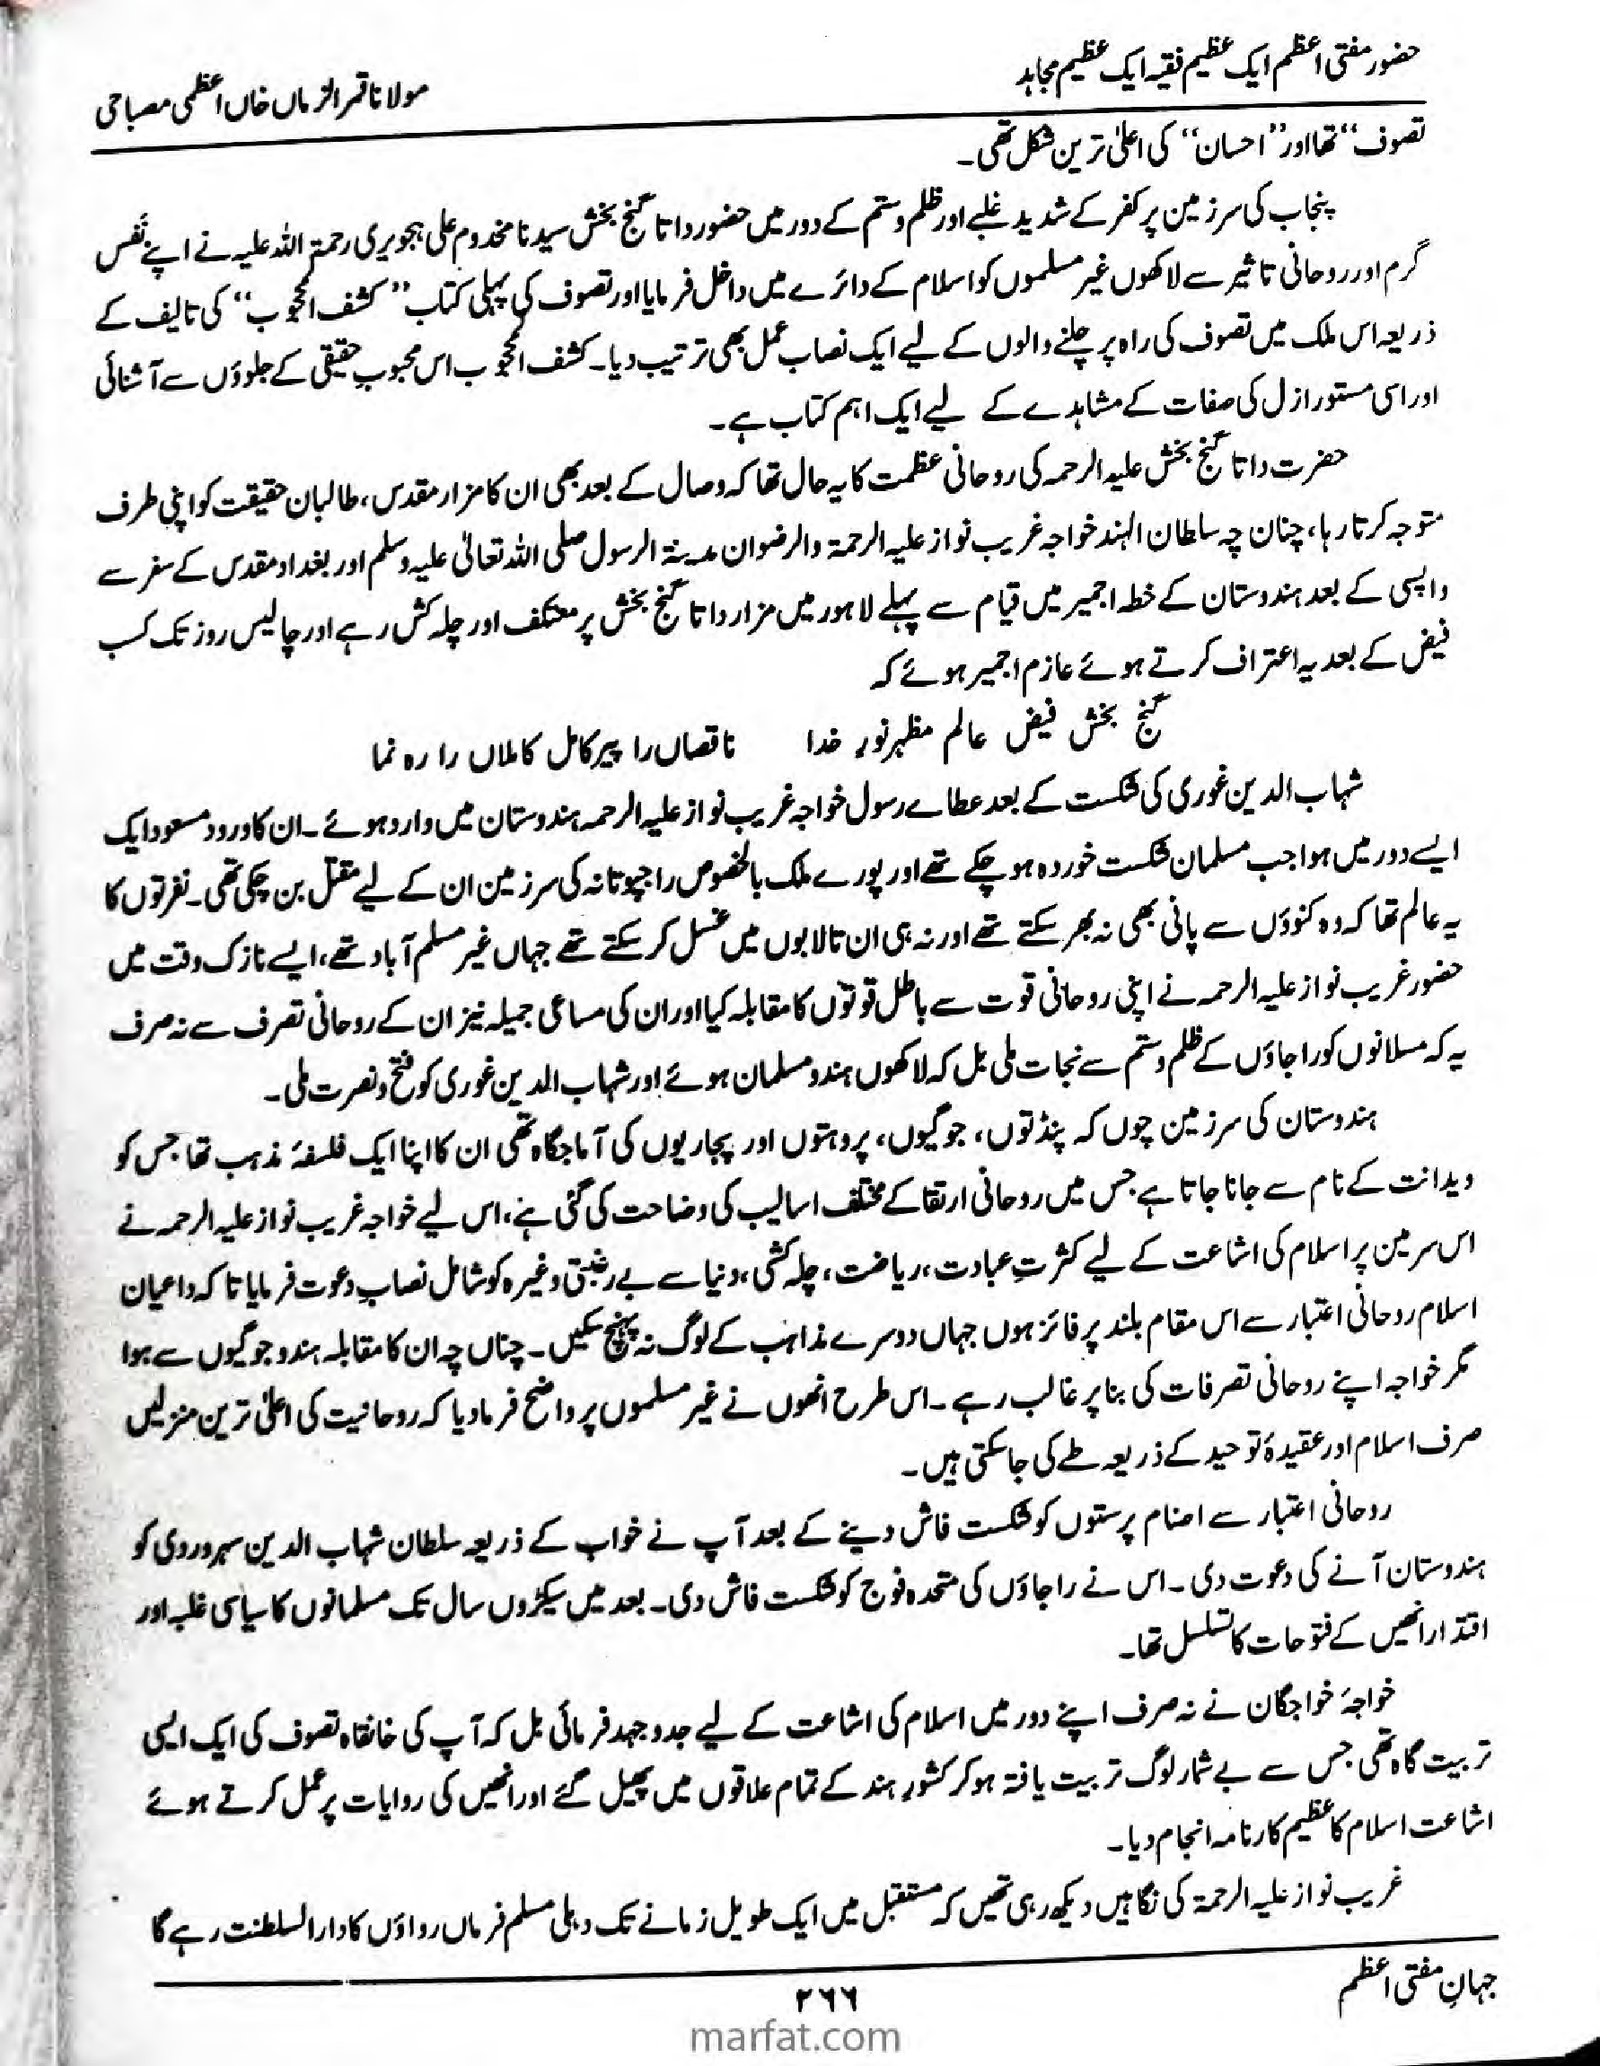 حضور مفتی اعظم ایک عظیم فقیہ ایک عظیم مجاہد
مولانا قمر الزماں خاں اعظمی مصباحی
تصوف“ تھا اور ”احسان“ کی اعلیٰ ترین شکل تھی۔
پنجاب کی سرزمین پر کفر کے شدید غلبے اور ظلم و ستم کے دور میں حضور داتا گنج بخش سیدنا مخدوم علی ہجویری رحمۃ اللہ علیہ نے اپنے نَفَس
گرم اور روحانی تاثیر سے لاکھوں غیر مسلموں کو اسلام کے دائرے میں داخل فرمایا اور تصوف کی پہلی کتاب ”کشف المحجوب“ کی تالیف کے
ذریعہ اس ملک میں تصوف کی راہ پر چلنے والوں کے لیے ایک نصاب عمل بھی ترتیب دیا۔ کشف المحجوب اس محبوبِ حقیقی کے جلوؤں سے آشنائی
اور اسی مستور ازل کی صفات کے مشاہدے کے لیے ایک اہم کتاب ہے۔
حضرت داتا گنج بخش علیہ الرحمہ کی روحانی عظمت کا یہ حال تھا کہ وصال کے بعد بھی ان کا مزار مقدس، طالبان حقیقت کو اپنی طرف
متوجہ کرتا رہا، چنان چہ سلطان الہند خواجہ غریب نواز علیہ الرحمۃ والرضوان مدینۃ الرسول صلی اللہ تعالیٰ علیہ وسلم اور بغداد مقدس کے سفر سے
واپسی کے بعد ہندوستان کے خطہ اجمیر میں قیام سے پہلے لاہور میں مزار داتا گنج بخش پر معتکف اور چلہ کش رہے اور چالیس روز تک کسب
فیض کے بعد یہ اعتراف کرتے ہوئے عازم اجمیر ہوئے کہ
گنج بخش فیض عالم مظہر نورِ خدا ناقصاں را پیر کامل کاملاں را رہ نما
شہاب الدین غوری کی شکست کے بعد عطاے رسول خواجہ غریب نواز علیہ الرحمہ ہندوستان میں وارد ہوئے۔ ان کا ورود مسعود ایک
ایسے دور میں ہوا جب مسلمان شکست خوردہ ہو چکے تھے اور پورے ملک بالخصوص راجپوتانہ کی سرزمین ان کے لیے مقتل بن چکی تھی۔ نفرتوں کا
یہ عالم تھا کہ وہ کنوؤں سے پانی بھی نہ بھر سکتے تھے اور نہ ہی ان تالابوں میں غسل کر سکتے تھے جہاں غیر مسلم آباد تھے، ایسے نازک وقت میں
حضور غریب نواز علیہ الرحمہ نے اپنی روحانی قوت سے باطل قوتوں کا مقابلہ کیا اور ان کی مساعی جمیلہ نیز ان کے روحانی تصرف سے نہ صرف
یہ کہ مسلانوں کو راجاؤں کے ظلم و ستم سے نجات ملی بل کہ لاکھوں ہندو مسلمان ہوئے اور شہاب الدین غوری کو فتح و نصرت ملی۔
ہندوستان کی سرزمین چوں کہ پنڈتوں، جوگیوں، پروہتوں اور پجاریوں کی آماجگاہ تھی ان کا اپنا ایک فلسفۂ مذہب تھا جس کو
ویدانت کے نام سے جانا جاتا ہے جس میں روحانی ارتقا کے مختلف اسالیب کی وضاحت کی گئی ہے، اس لیے خواجہ غریب نواز علیہ الرحمہ نے
اس سرمین پر اسلام کی اشاعت کے لیے کثرتِ عبادت، ریاضت، چلہ کشی، دنیا سے بے رغبتی وغیرہ کو شامل نصابِ دعوت فرمایا تاکہ داعیان
اسلام روحانی اعتبار سے اس مقام بلند پر فائز ہوں جہاں دوسرے مذاہب کے لوگ نہ پہنچ سکیں۔ چناں چہ ان کا مقابلہ ہندو جوگیوں سے ہوا
مگر خواجہ اپنے روحانی تصرفات کی بنا پر غالب رہے۔ اس طرح انھوں نے غیر مسلموں پر واضح فرما دیا کہ روحانیت کی اعلیٰ ترین منزلیں
صرف اسلام اور عقیدۂ توحید کے ذریعہ طے کی جا سکتی ہیں۔
روحانی اعتبار سے اصنام پرستوں کو شکست فاش دینے کے بعد آپ نے خواب کے ذریعہ سلطان شہاب الدین سہروردی کو
ہندوستان آنے کی دعوت دی۔ اس نے راجاؤں کی متحدہ فوج کو شکست فاش دی۔ بعد میں سیکڑوں سال تک مسلمانوں کا سیاسی غلبہ اور
اقتدار انھیں کے فتوحات کا تسلسل تھا۔
خواجۂ خواجگان نے نہ صرف اپنے دور میں اسلام کی اشاعت کے لیے جدوجہد فرمائی بل کہ آپ کی خانقاہ تصوف کی ایک ایسی
تربیت گاہ تھی جس سے بے شمار لوگ تربیت یافتہ ہو کر کشورِ ہند کے تمام علاقوں میں پھیل گئے اور انھیں کی روایات پر عمل کرتے ہوئے
اشاعت اسلام کا عظیم کارنامہ انجام دیا۔
غریب نواز علیہ الرحمۃ کی نگاہیں دیکھ رہی تھیں کہ مستقبل میں ایک طویل زمانے تک دہلی مسلم فرماں رواؤں کا دارالسلطنت رہے گا
جہانِ مفتی اعظم
۲۶۶
marfat.com